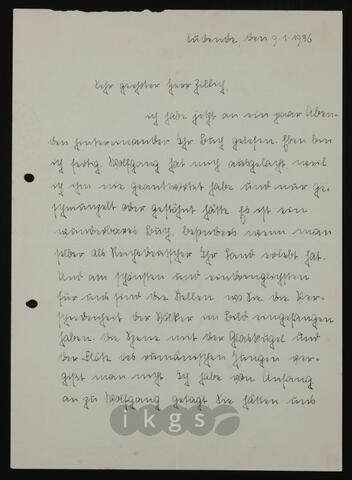 den 9.1.1936
Sehr geehrter Herr Zillich,
ich habe jetzt an ein paar Aben-
den hintereinander Ihr Buch gelesen. Eben bin
ich fertig. Wolfgang hat mich ausgelacht, weil
ich ihm nie geantwortet habe und nur ge-
schmunzelt oder gestöhnt hätte. Es ist ein
wunderbares Buch, besonders wenn man
selber als Reichsdeutscher Ihr Land erlebt hat.
Und am schönsten und eindringlichsten
für uns sind die Stellen wo Sie die Ver-
schiedenheit der Völker im Bild eingefangen
haben. Die Szene mit der Glaskugel und
der Flöte des rumänischen Jungen ver-
gißt man nicht. Ich habe von Anfang
an zu Wolfgang gesagt Sie hätten uns
ikgs